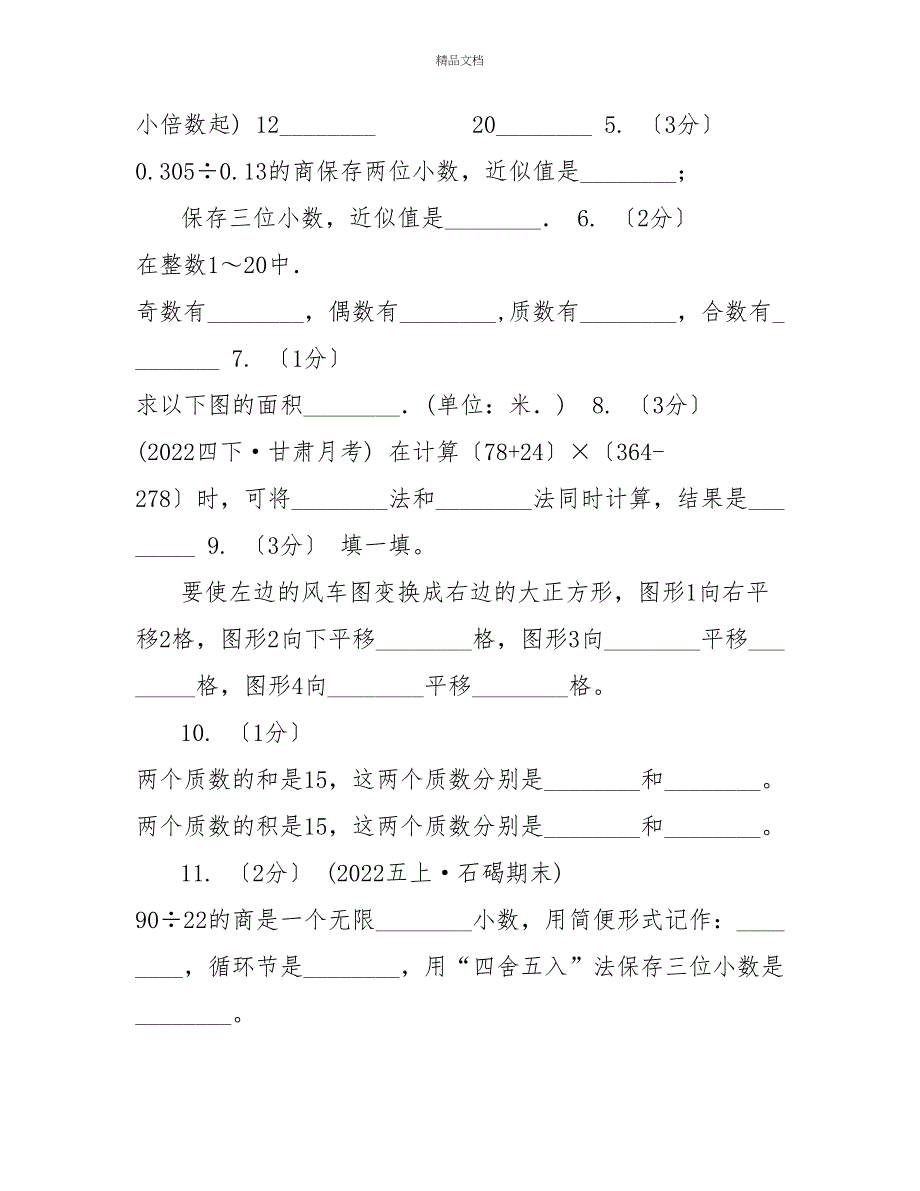 精品文档
小倍数起) 12________ 20________ 5. 〔3分〕
0.305÷0.13的商保存两位小数，近似值是________；
保存三位小数，近似值是________． 6. 〔2分〕
在整数1～20中．
奇数有________，偶数有________,质数有________，合数有_
_______ 7. 〔1分〕
求以下图的面积________．(单位：米．) 8. 〔3分〕
(2022四下·甘肃月考) 在计算〔78+24〕×〔364-
278〕时，可将________法和________法同时计算，结果是___
_____ 9. 〔3分〕 填一填。
要使左边的风车图变换成右边的大正方形，图形1向右平
移2格，图形2向下平移________格，图形3向________平移___
_____格，图形4向________平移________格。
10. 〔1分〕
两个质数的和是15，这两个质数分别是________和________。
两个质数的积是15，这两个质数分别是________和________。
11. 〔2分〕 (2022五上·石碣期末)
90÷22的商是一个无限________小数，用简便形式记作：____
____，循环节是________，用“四舍五入”法保存三位小数是
________。